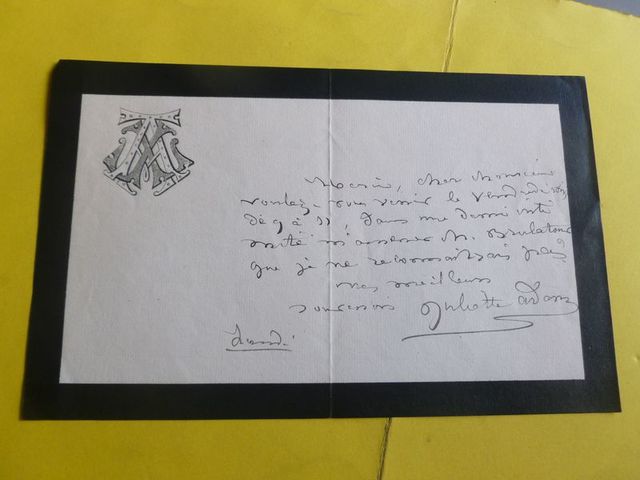 Merci, cher Monsieur
voulez-vous venir le Vendredi
de 9 à 11 Dans une
m'amener M.
que je ne reconnaissais pas?
mes meilleurs
souvenirs Juliette Adam
Lundi